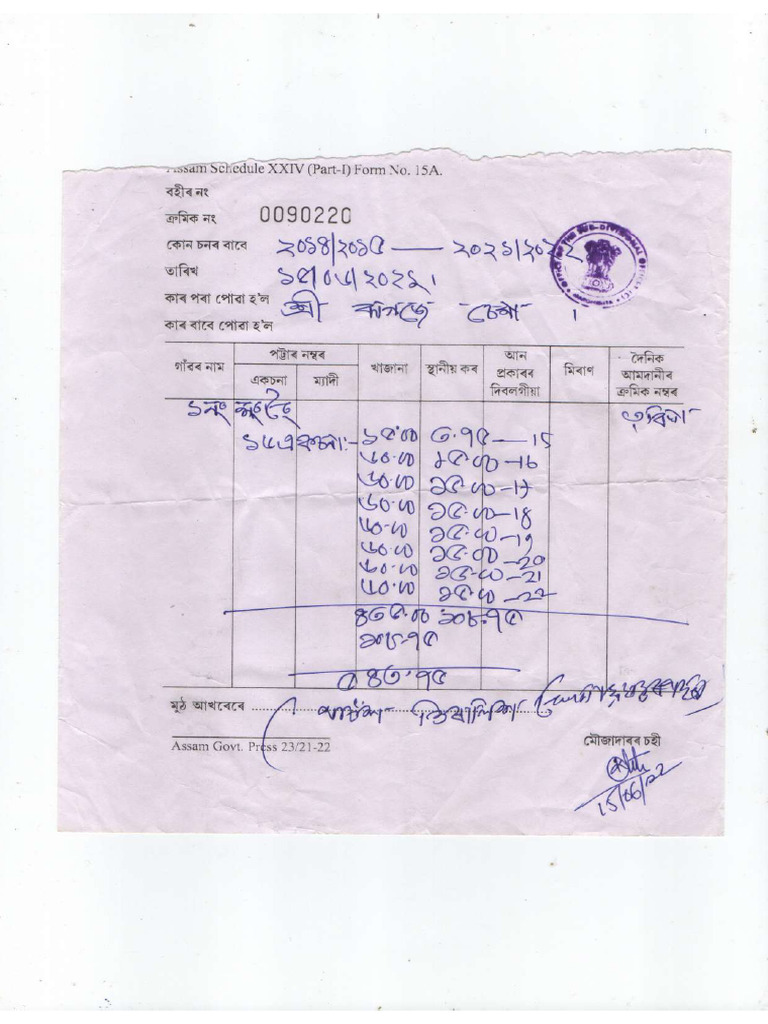 Assam Schedule XXIV (Part-I) Form No. 15A.
বহীৰ নং
ক্ৰমিক নং 0090220
কোন চনৰ বাবে ২০১৪/২০১৫ — ২০২১/২০২২
তাৰিখ ১৫/০৬/২০২২
কাৰ পৰা পোৱা হ'ল শ্ৰী
কাৰ বাবে পোৱা হ'ল
গাঁৱৰ নাম পট্টাৰ নম্বৰ খাজানা স্থানীয় কৰ আন প্ৰকাৰৰ দিবলগীয়া মিৰাণ দৈনিক আমদানীৰ ক্ৰমিক নম্বৰ
একচনা ম্যাদী
১নং
১৫.০০ ৩.৭৫ — 15
৬০.০০ ১৫.০০ — 16
৬০.০০ ১৫.০০ — 17
৬০.০০ ১৫.০০ — 18
৬০.০০ ১৫.০০ — 19
৬০.০০ ১৫.০০ — 20
৬০.০০ ১৫.০০ — 21
৬০.০০ ১৫.০০ — 22
৪৩৫.০০ ১০৮.৭৫
১০৮.৭৫
৫৪৩.৭৫
মুঠ আখৰেৰে
Assam Govt. Press 23/21-22
মৌজাদাৰৰ চহী
15/06/22